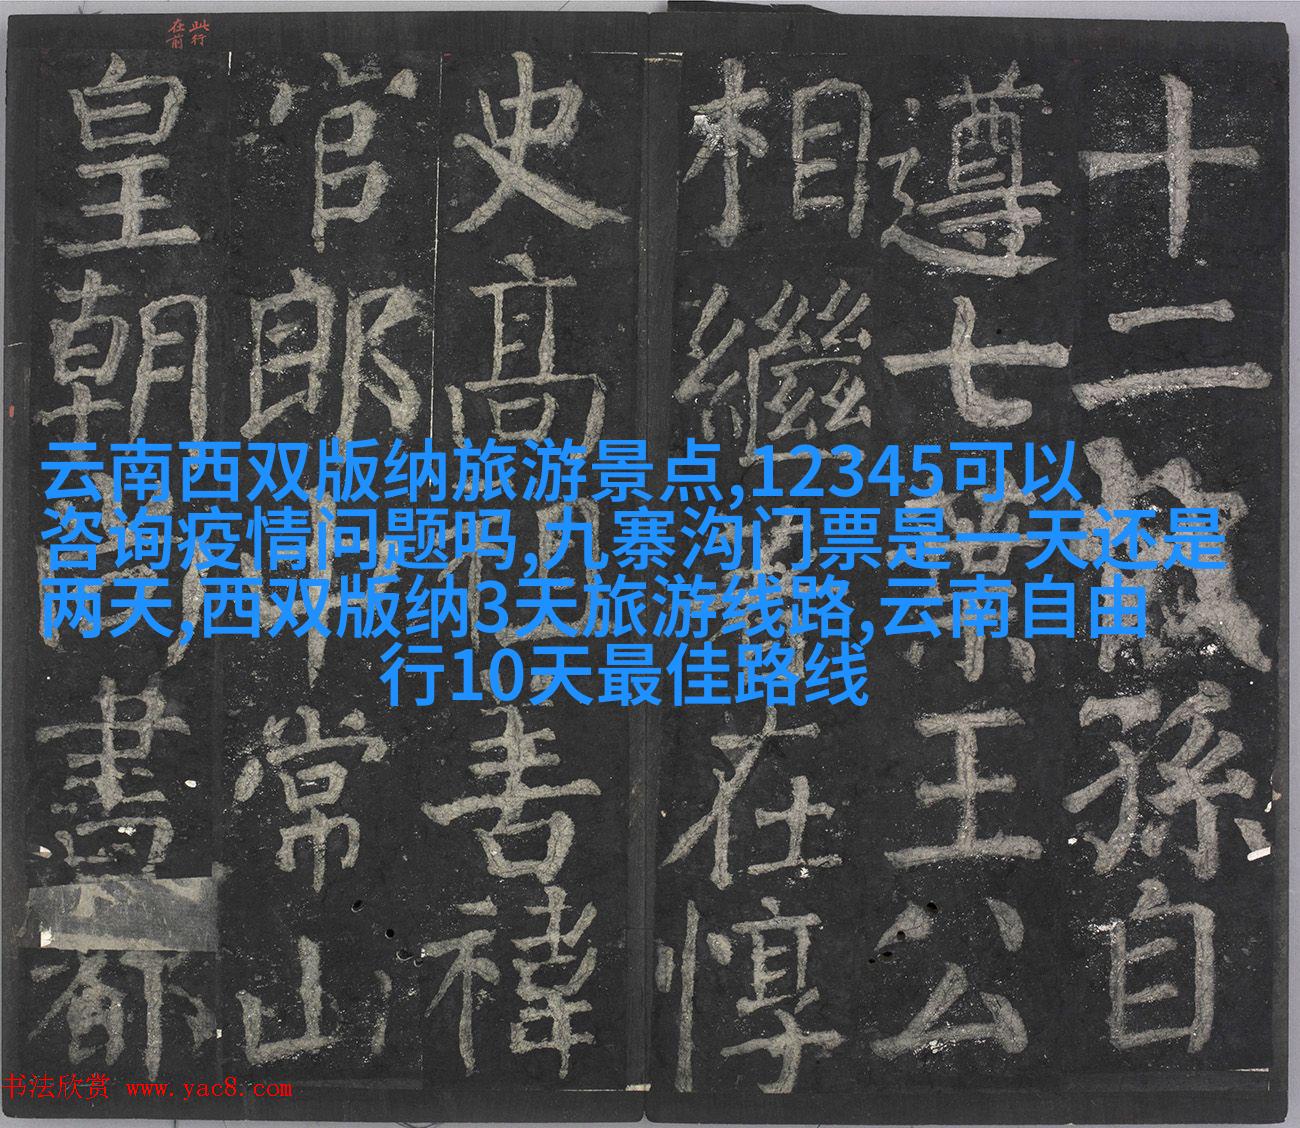 此行
在前
十二
孫自
遵七葉王公
相繼
在惇
史高祖
禕
官郎
常山
皇朝
都
云南西双版纳旅游景点,12345可以
咨询疫情问题吗,九寨沟门票是一天还是
两天,西双版纳3天旅游线路,云南自由
行10天最佳路线
书法欣赏 www.yac8.com